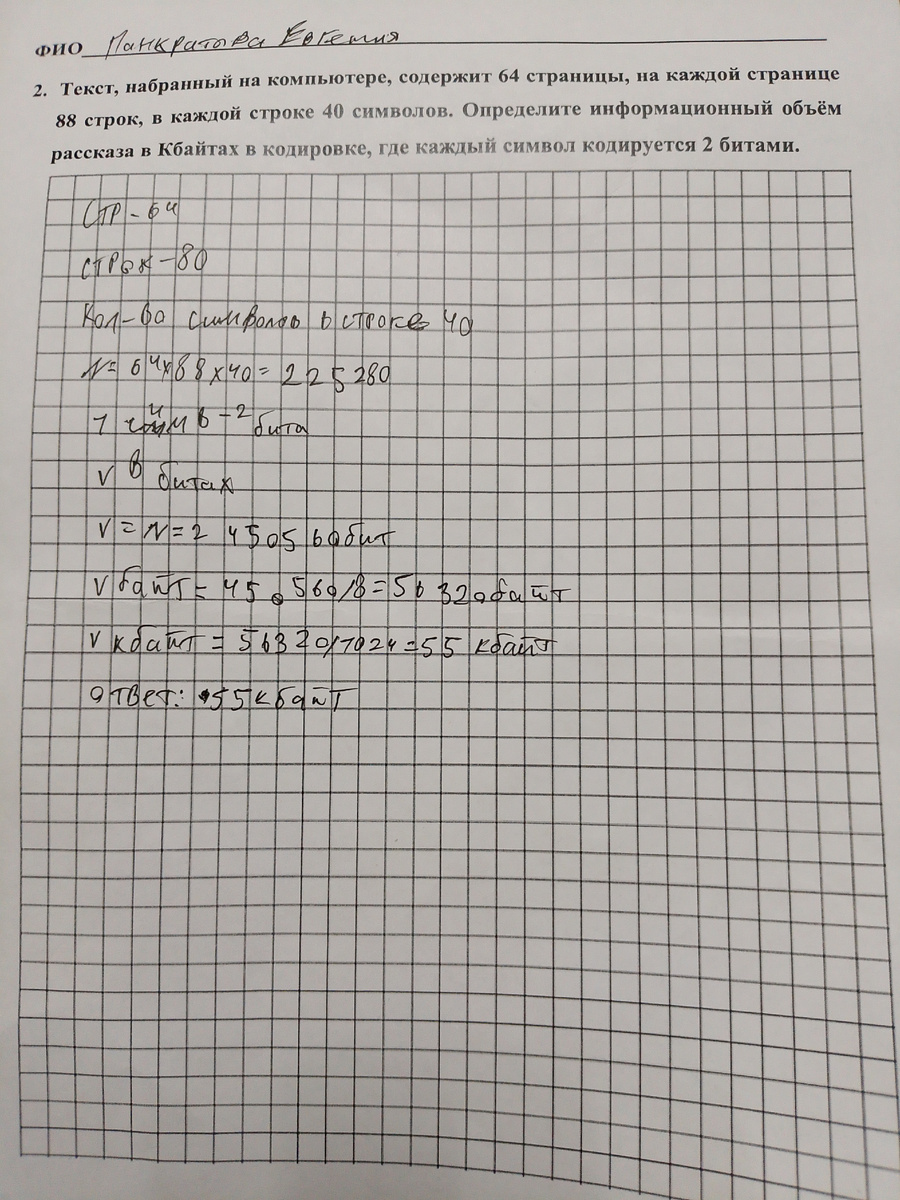 ФИО Панкратьева Евгения
2. Текст, набранный на компьютере, содержит 64 страницы, на каждой странице
88 строк, в каждой строке 40 символов. Определите информационный объём
рассказа в Кбайтах в кодировке, где каждый символ кодируется 2 битами.
СТР - 64
СТРОК - 80
Кол-во символов в строке 40
N= 64x88x40= 225280
1 симв - 2 бита
V в битах
V = N = 2 450560 бит
V байт = 450560/8 = 56320 байт
V кбайт = 56320/1024 = 55 кбайт
Ответ: 55 кбайт